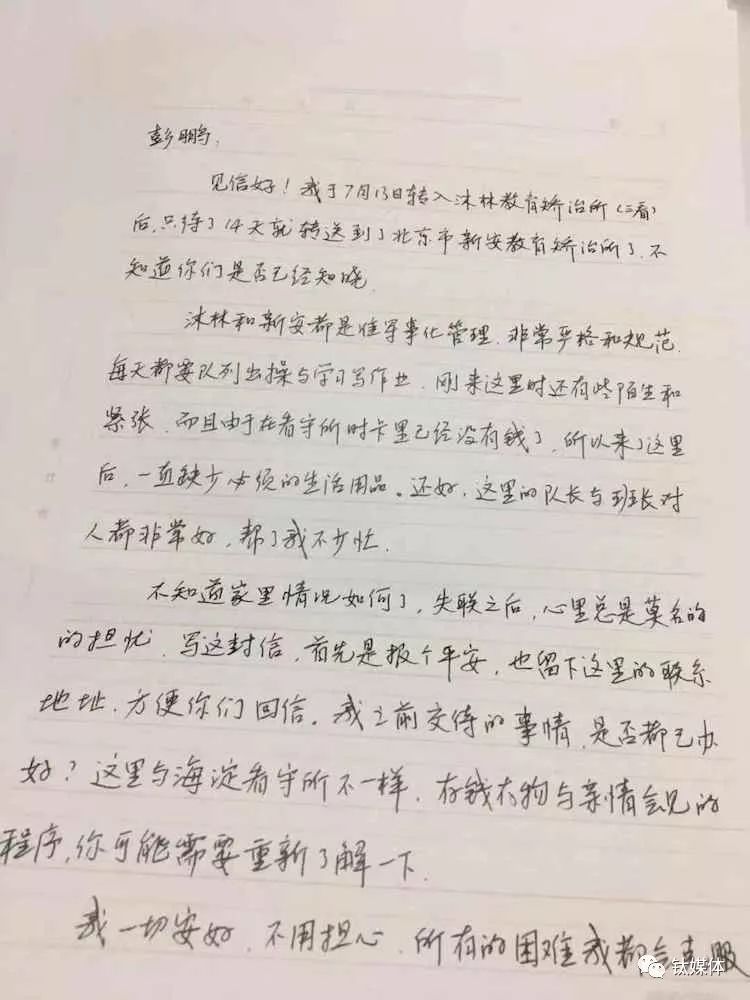 彭鹏，
见信好！我于7月13日转入沐林教育矫治所（三看）
后，只待了14天就转送到了北京市新安教育矫治所了，不
知道你们是否已经知晓．
沐林和新安都是准军事化管理，非常严格和规范．
每天都要队列出操与学习写作业．刚来这里时还有些陌生和
紧张，而且由于在看守所时卡里已经没有钱了，所以来了这里
后，一直缺少必须的生活用品。还好，这里的队长与班长对
人都非常好，帮了我不少忙．
不知道家里情况如何了，失联之后，心里总是莫名的
的担忧．写这封信，首先是报个平安，也留下这里的联系
地址，方便你们回信。我之前交待的事情，是否都已办
好？这里与海淀看守所不一样，存钱存物与亲情会见的
程序，你可能需要重新了解一下．
我一切安好，不用担心，所有的困难我都会克服
钛媒体